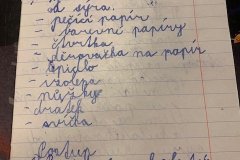 od sýra.
- pečící papír
- barevné papíry
- čtvrtka
- děrovačka na papír
- lepidlo
- izolepa
- nůžky
- drátek
- svíčka
Postup